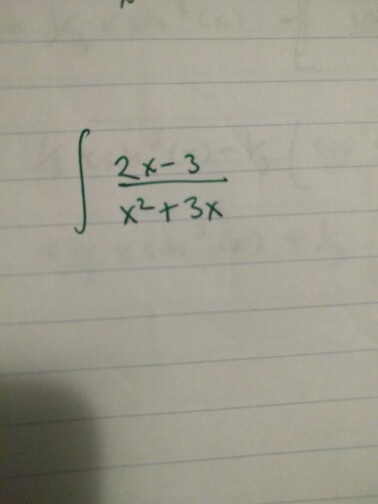 ∫ (2x-3)/(x²+3x)